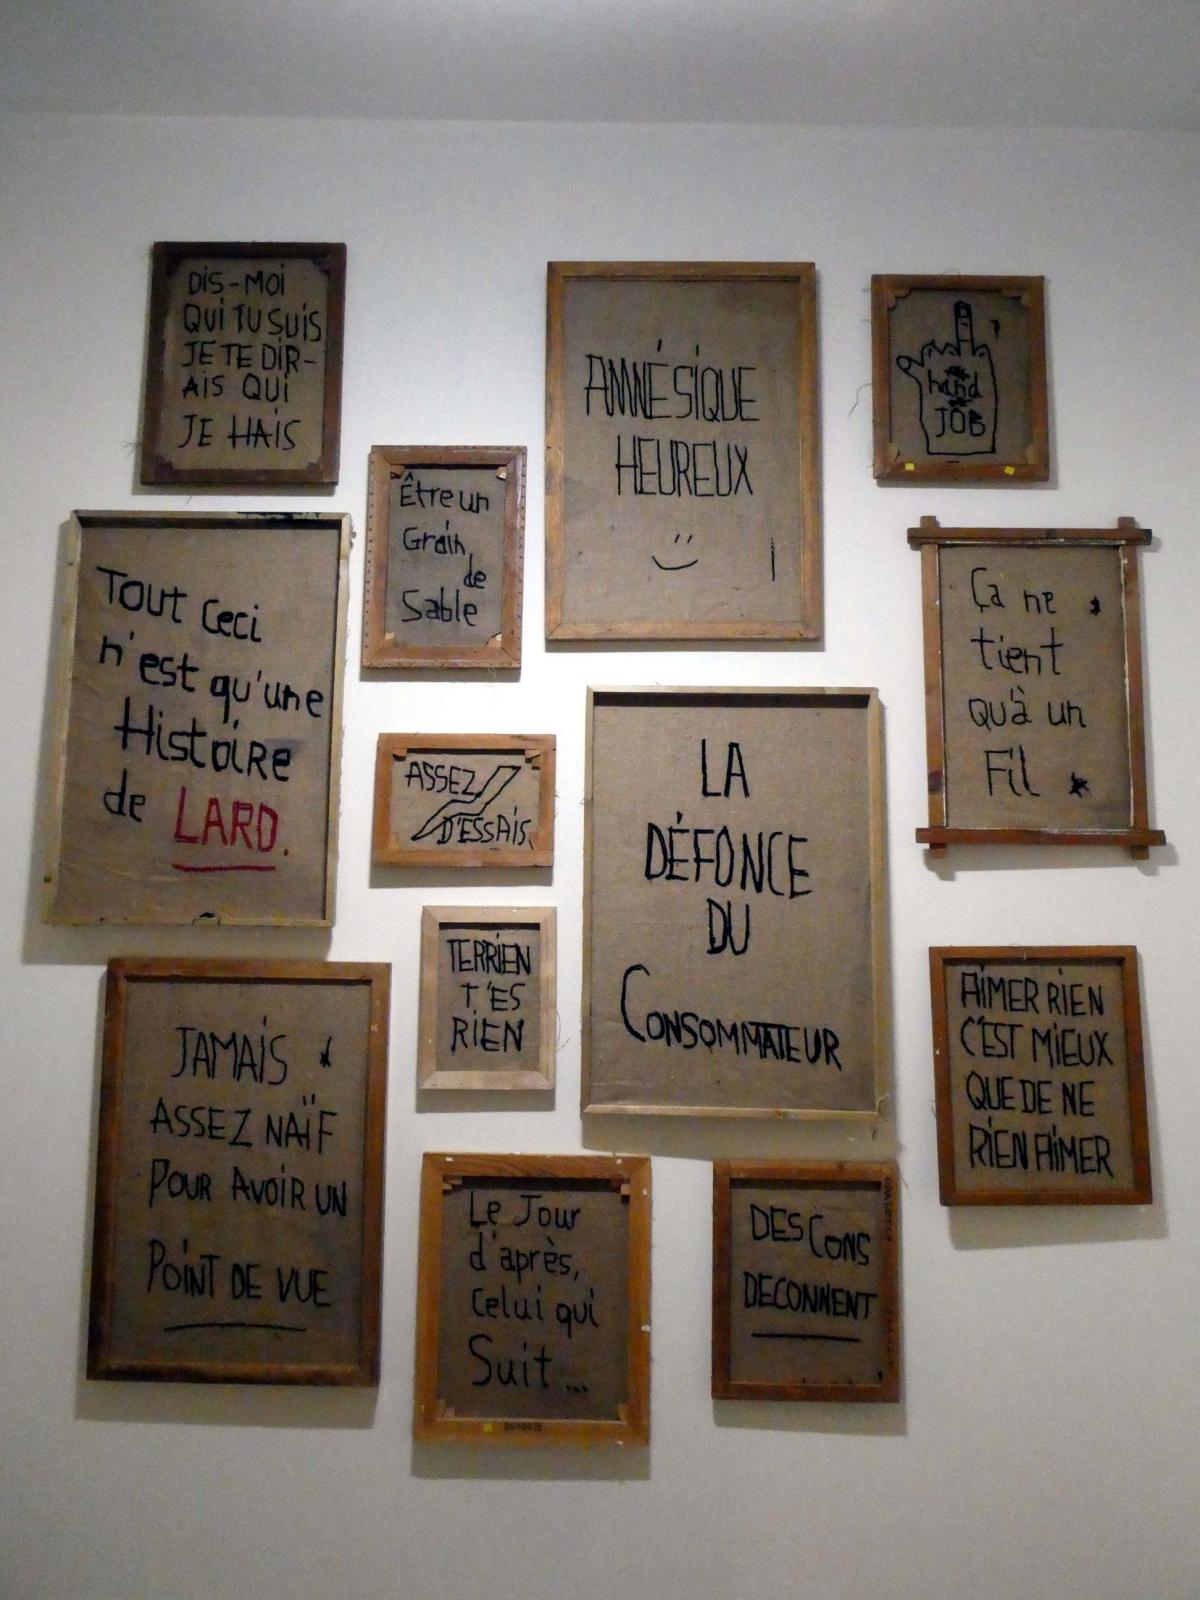 DiS-MOi
QUi TU SUiS
JE TE DIR-
AIS QUi
JE HAIS
AMNÉSIQUE
HEUREUX
hand
JOB
Être un
Grain
de
Sable
Tout Ceci
n'est qu'une
Histoire
de LARD.
Ça ne
tient
qu'à un
Fil
ASSEZ
D'ESSAIS
LA
DÉFONCE
DU
CONSOMMATEUR
TERRIEN
T'ES
RIEN
AIMER RIEN
C'EST MiEUX
QUE DE NE
RIEN AIMER
JAMAIS
ASSEZ NAÏF
POUR AVOIR UN
POINT DE VUE
Le Jour
d'après,
Celui qui
Suit...
DES CONS
DECONNENT